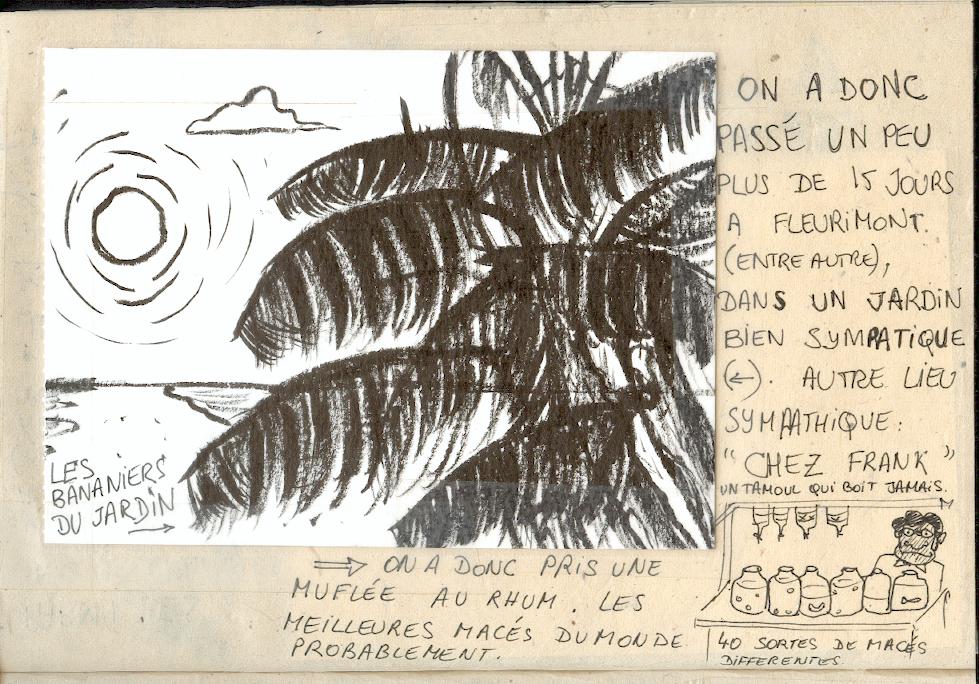 ON A DONC
PASSÉ UN PEU
PLUS DE 15 JOURS
A FLEURIMONT.
(ENTRE AUTRE),
DANS UN JARDIN
BIEN SYMPATIQUE
(←). AUTRE LIEU
SYMPATHIQUE:
"CHEZ FRANK"
UN TAMOUL QUI BOIT JAMAIS.
LES
BANANIERS
DU JARDIN
→
⇒ ON A DONC PRIS UNE
MUFLÉE AU RHUM. LES
MEILLEURES MACÉS DU MONDE
PROBABLEMENT.
40 SORTES DE MACÉS
DIFFERENTES.